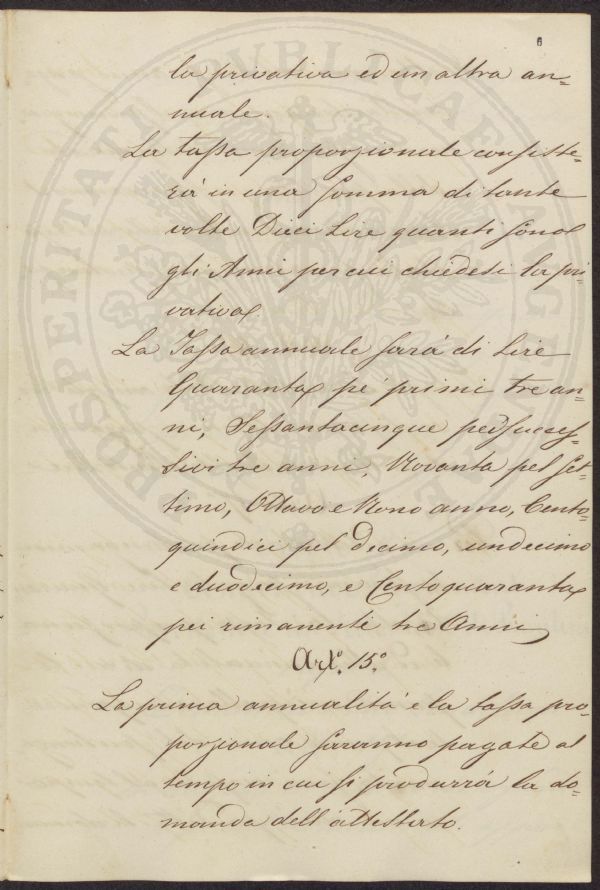 6
la privativa ed un altra an=
nuale.
La tassa proporzionale consiste=
rà in una somma di tante
volte Dieci Lire quanti sono
gli Anni per cui chiedesi la pri=
vativa
La Tassa annuale sarà di Lire
Quaranta pe' primi tre an=
ni, Sessantacinque pei succes=
sivi tre anni, Novanta pel set=
timo, Ottavo e Nono anno, Cento=
quindici pel decimo, undecimo
e duodecimo, e Centoquaranta
pei rimanenti tre Anni
Art.º 15.º
La prima annualità e la tassa pro=
porzionale saranno pagate al
tempo in cui si produrrà la do=
manda dell'attestato.
PROSPERITATI PUBLICAE